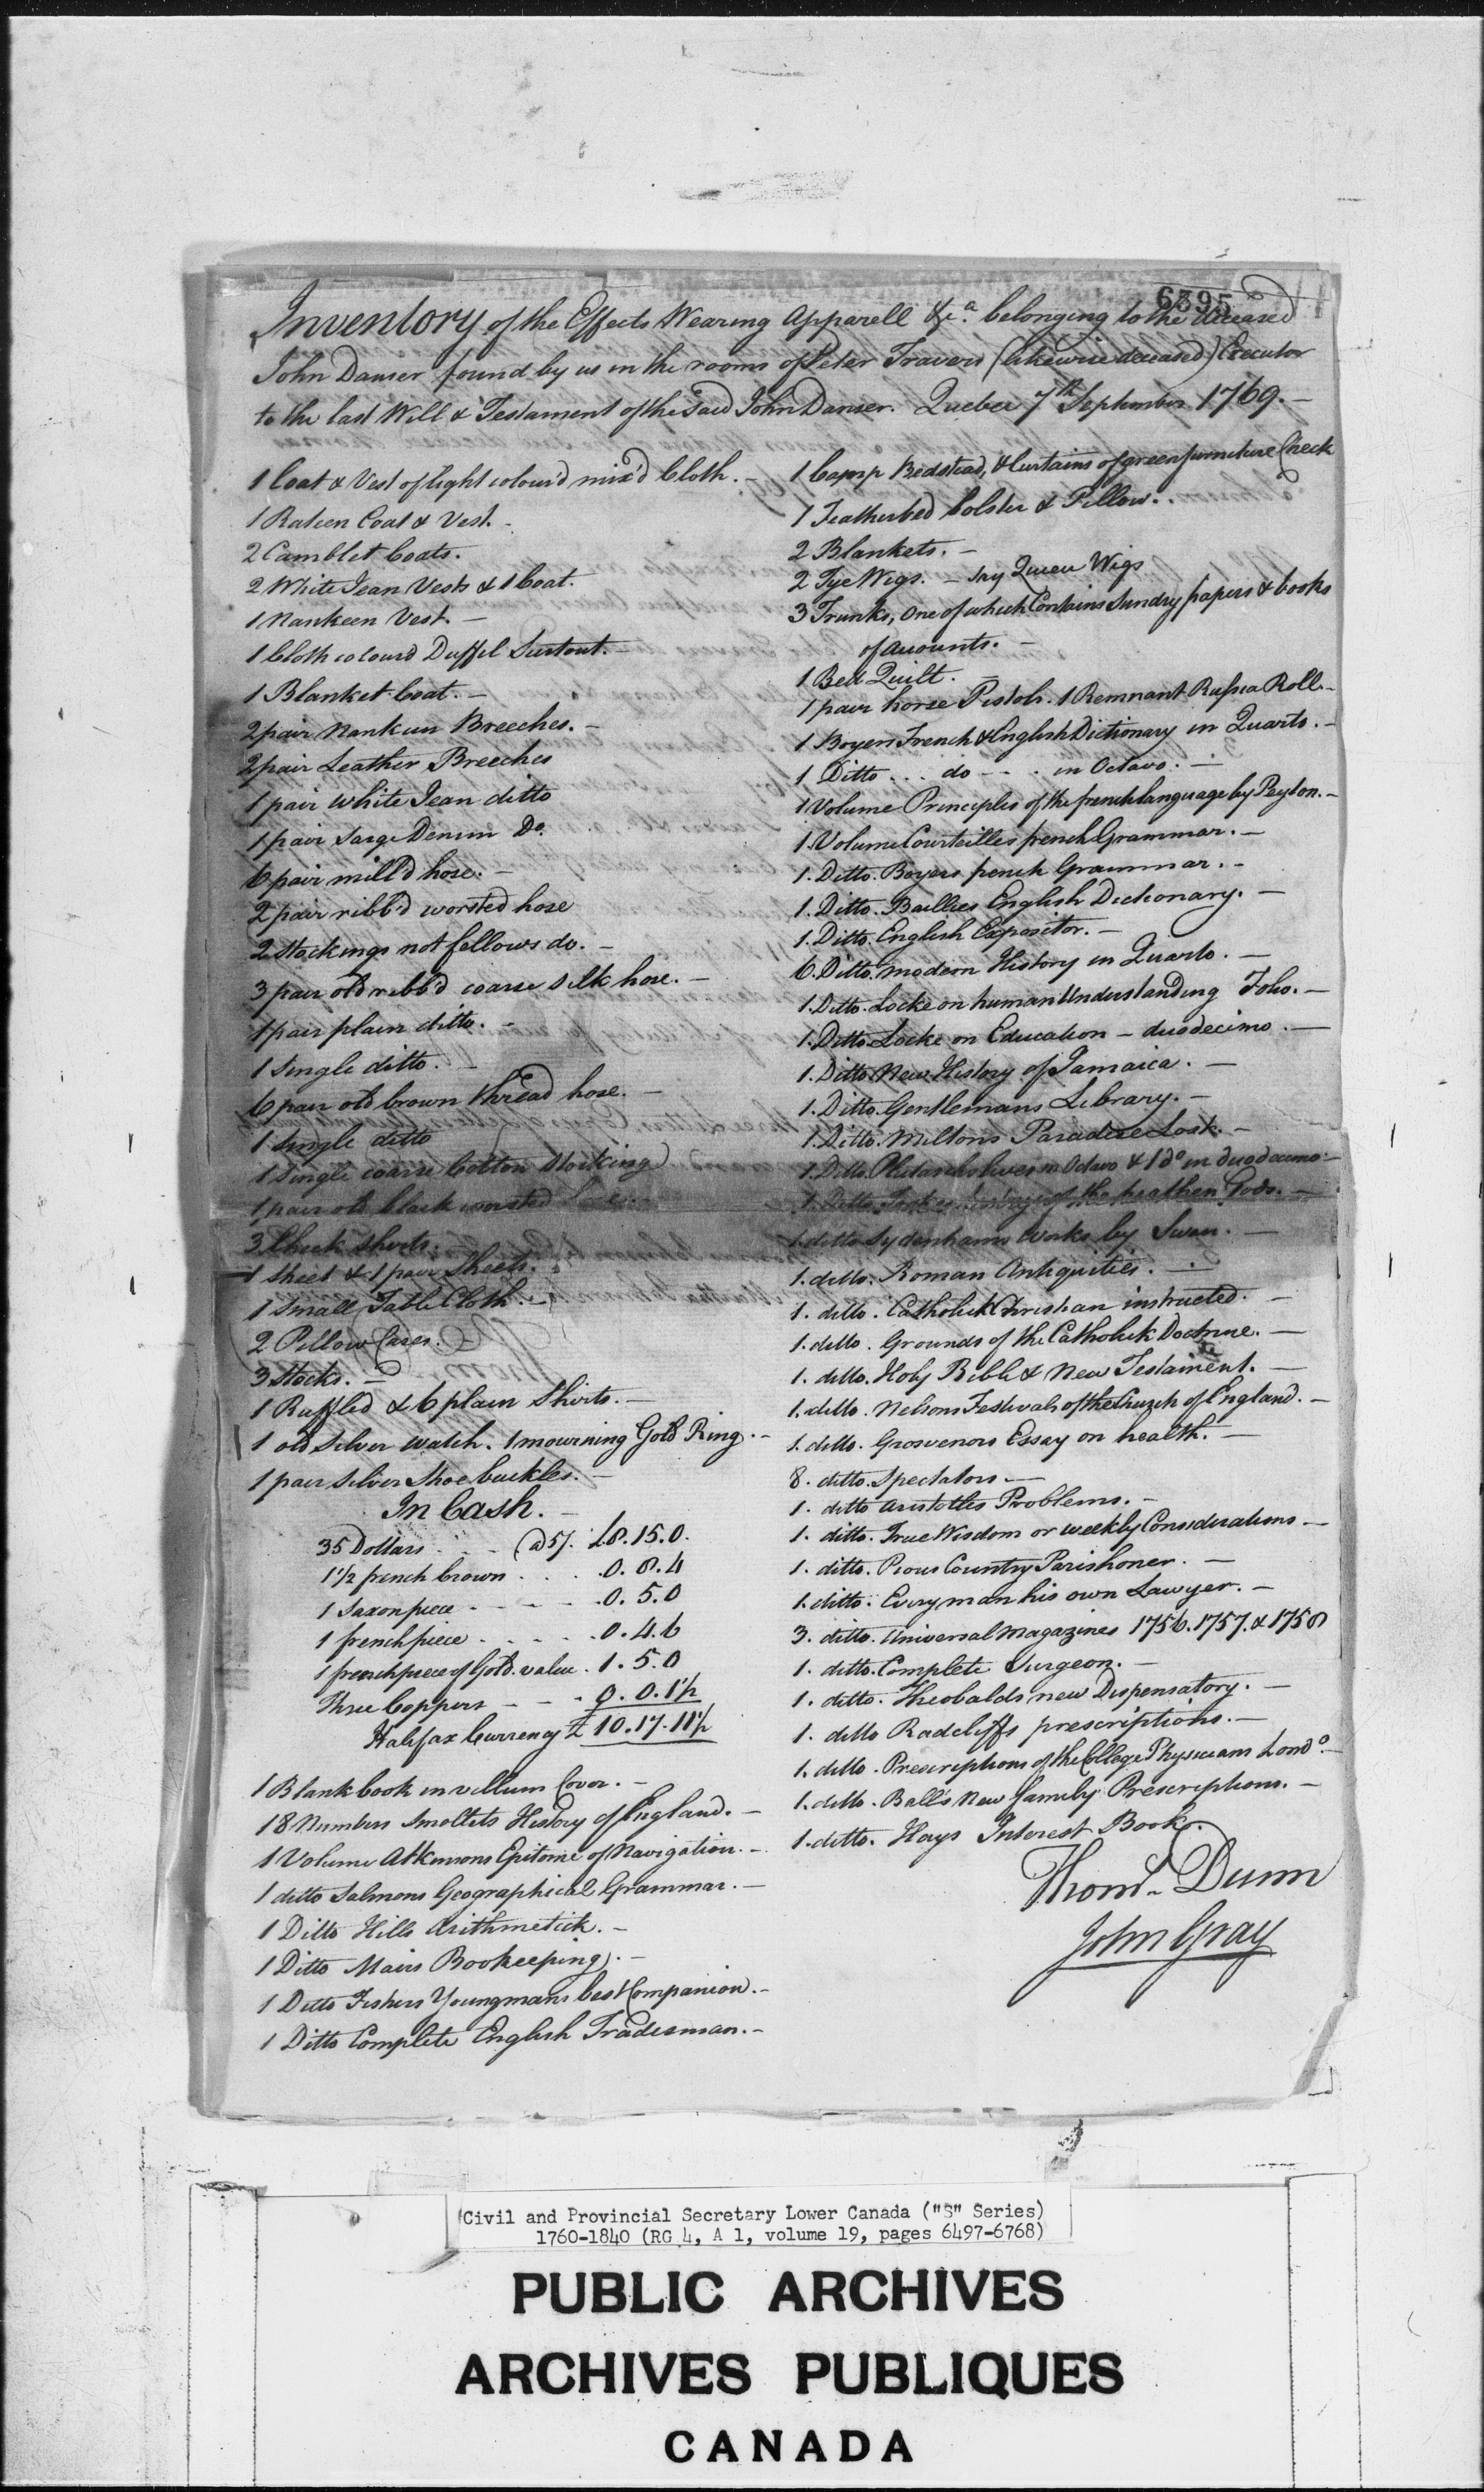 6395
Inventory of the Effects Wearing Apparell &c.a belonging to the deceased
John Danser found by us in the rooms of Peter Travers (likewise deceased) Executor
to the last Will & Testament of the said John Danser. Quebec 7th September 1769.—
1 Coat & Vest of light colour'd mix'd Cloth.—
1 Rateen Coat & Vest.—
2 Camblet Coats.
2 White Jean Vests & 1 Coat.
1 Nankeen Vest.—
1 Cloth colourd Duffil Surtout.—
1 Blanket Coat.—
2 pair Nankeen Breeches.—
2 pair Leather Breeches
1 pair white Jean ditto
1 pair Sarge Denim Do.
6 pair mill'd hose.—
2 pair ribb'd worsted hose
2 Stockings not fellows do.—
3 pair old ribb'd coarse silk hose.—
1 pair plain ditto.—
1 Single ditto.—
6 pair old brown thread hose.—
1 Single ditto
1 Single coarse Cotton Stocking
1 pair old black worsted
3 Check Shirts.
1 Sheet & 1 pair Sheets.
1 Small Table Cloth.—
2 Pillow Cases.—
3 Stocks.—
1 Ruffled & 6 plain Shirts.—
1 old Silver watch. 1 mourning Gold Ring.—
1 pair Silver Shoe buckles.—
In Cash.—
35 Dollars . . . @ 5/. £8.15.0.
1 1/2 french Crown . . . 0.8.4
1 Saxon piece - - - 0.5.0
1 french piece . . . 0.4.6
1 french piece of Gold. value. 1.5.0
Three Coppers - - - 0.0.1 1/2
Halifax Currency £ 10.17.11 1/2
1 Blank book in vellum Cover.—
18 Numbers Smolletts History of England.—
1 Volume Atkinsons Epitome of Navigation.—
1 ditto Salmons Geographical Grammar.—
1 Ditto Hills Arithmetick.—
1 Ditto Mairs Bookeeping.—
1 Ditto Fishers Youngmans best Companion.—
1 Ditto Complete English Tradesman.—
1 Camp Bedstead, & Curtains of green furniture Check
1 Featherbed bolster & Pillow.
2 Blankets.—
2 Tye Wigs.— say Queue Wigs
3 Trunks, One of which Contains Sundry papers & books
of accounts.—
1 Bed Quilt.—
1 pair horse Pistols. 1 Remnant Russia Roll.—
1 Boyers French & English Dictionary in Quarto.—
1 Ditto . . . do - - . in Octavo.—
1 Volume Principles of the french language by Peyton.—
1. Volume Courteilles french Grammar.—
1. Ditto. Boyers french Grammar.—
1. Ditto. Baillies English Dictionary.—
1. Ditto. English Expositor.—
6. Ditto. modern History in Quarto.—
1. Ditto. Locke on human Understanding Folio.—
1. Ditto. Locke on Education — duodecimo.—
1. Ditto New History of Jamaica.—
1. Ditto. Gentlemans Library.—
1. Ditto. Miltons Paradise Lost.—
1. Ditto. Plutarchs lives in Octavo & 1 do in duodecimo—
1. Ditto. history of the heathen Gods.—
1. ditto Sydenhams Works by Swan.—
1. ditto. Roman Antiquities.—
1. ditto. Catholick Christian instructed.—
1. ditto. Grounds of the Catholick Doctrine.—
1. ditto. Holy Bible & New Testament.—
1. ditto. Nelsons Festivals of the Church of England.—
1. ditto. Grosvenors Essay on health.—
8. ditto. Spectators.—
1. ditto Aristotles Problems.—
1. ditto. True Wisdom or weekly Considerations—
1. ditto. Pious Country Parishoner.—
1. ditto. Every man his own Lawyer.—
3. ditto. Universal Magazines 1756. 1757. & 1758
1. ditto. Complete Surgeon.—
1. ditto. Theobalds new Dispensatory.—
1. ditto Radcliffs prescriptions.—
1. ditto. Prescriptions of the College Physicians Londo.—
1. ditto. Ball's New family Prescriptions.—
1. ditto. Hays Interest Book.
Thoms. Dunn
John Gray
Civil and Provincial Secretary Lower Canada ("S" Series)
1760-1840 (RG 4, A 1, volume 19, pages 6497-6768)
PUBLIC ARCHIVES
ARCHIVES PUBLIQUES
CANADA